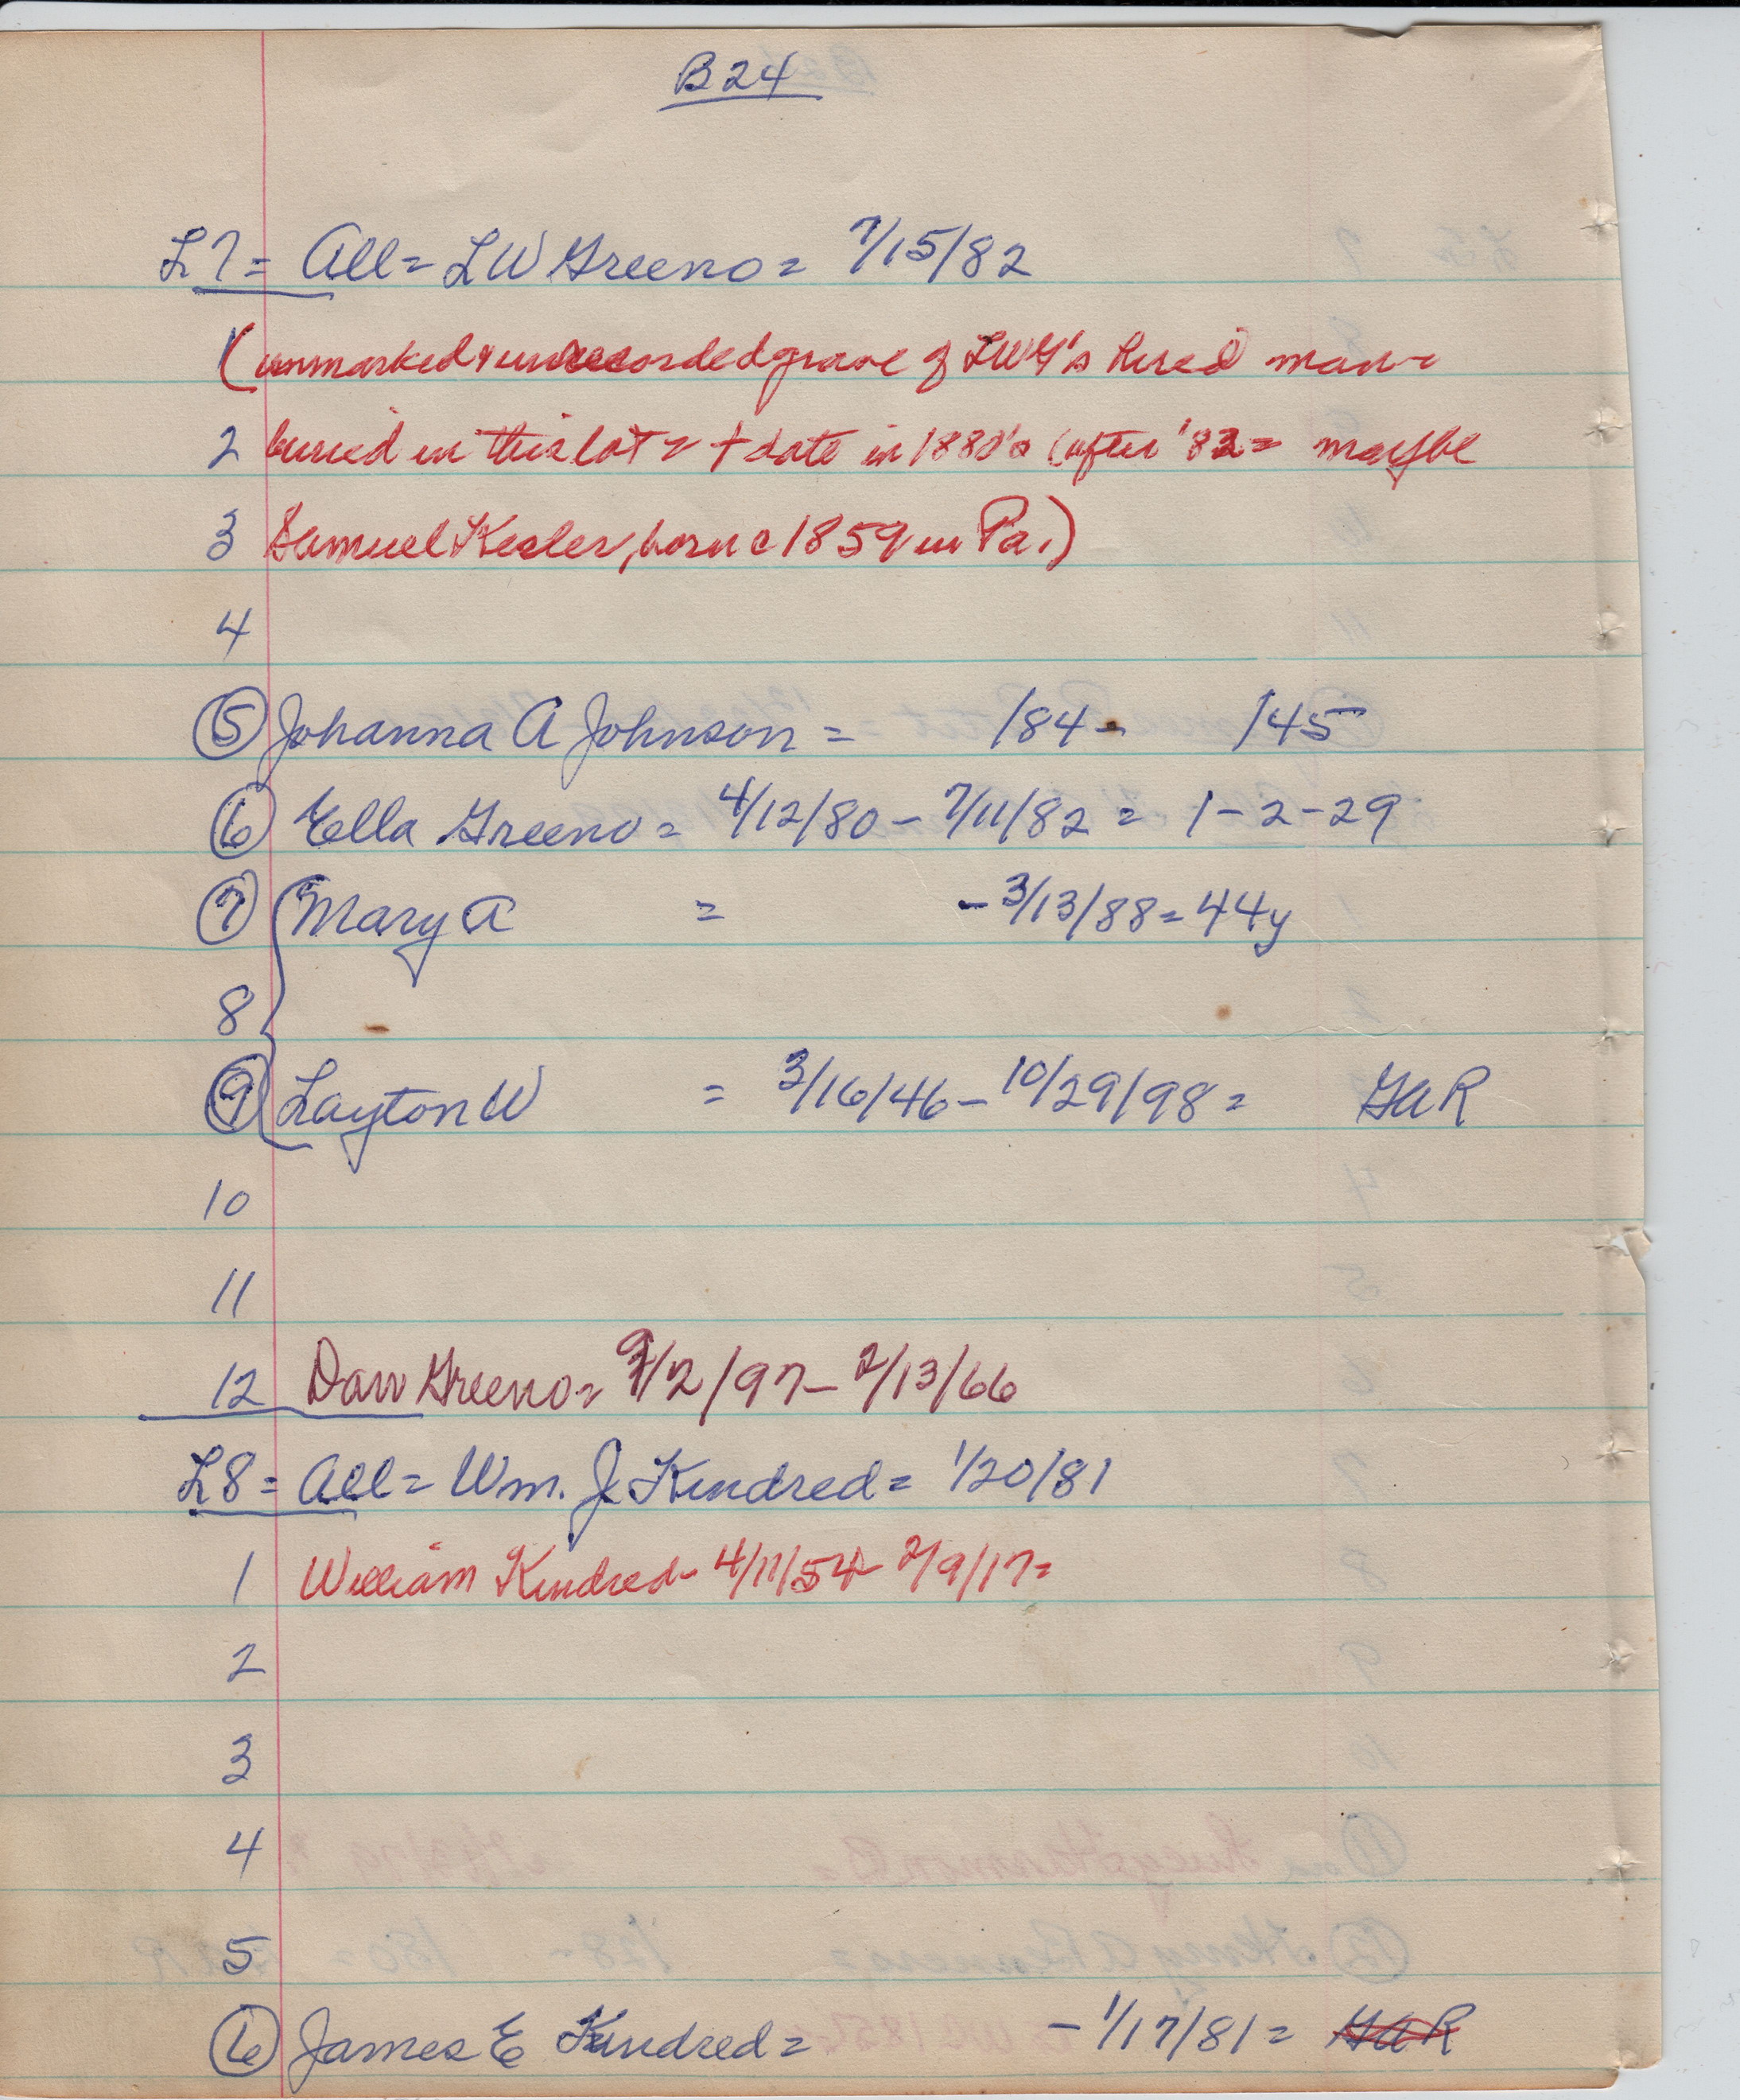 B24
L7 = All = LW Greeno = 7/15/82
1 (unmarked & unrecorded grave of LWG's hired man =
2 buried in this lot = + date in 1880's (after '82 = maybe
3 Samuel Kesler, born c 1859 in Pa.)
4
5 Johanna A Johnson = /84 - /45
6 Ella Greeno = 4/12/80 - 7/11/82 = 1-2-29
7 Mary A = - 3/13/88 = 44y
8
9 Layton W = 3/16/46 - 10/29/98 = GAR
10
11
12 Dan Greeno = 9/2/97 - 2/13/66
L8 = All = Wm. J Kindred = 1/20/81
1 William Kindred - 4/11/54 - 2/9/17 =
2
3
4
5
6 James E Kindred = - 1/17/81 = GAR